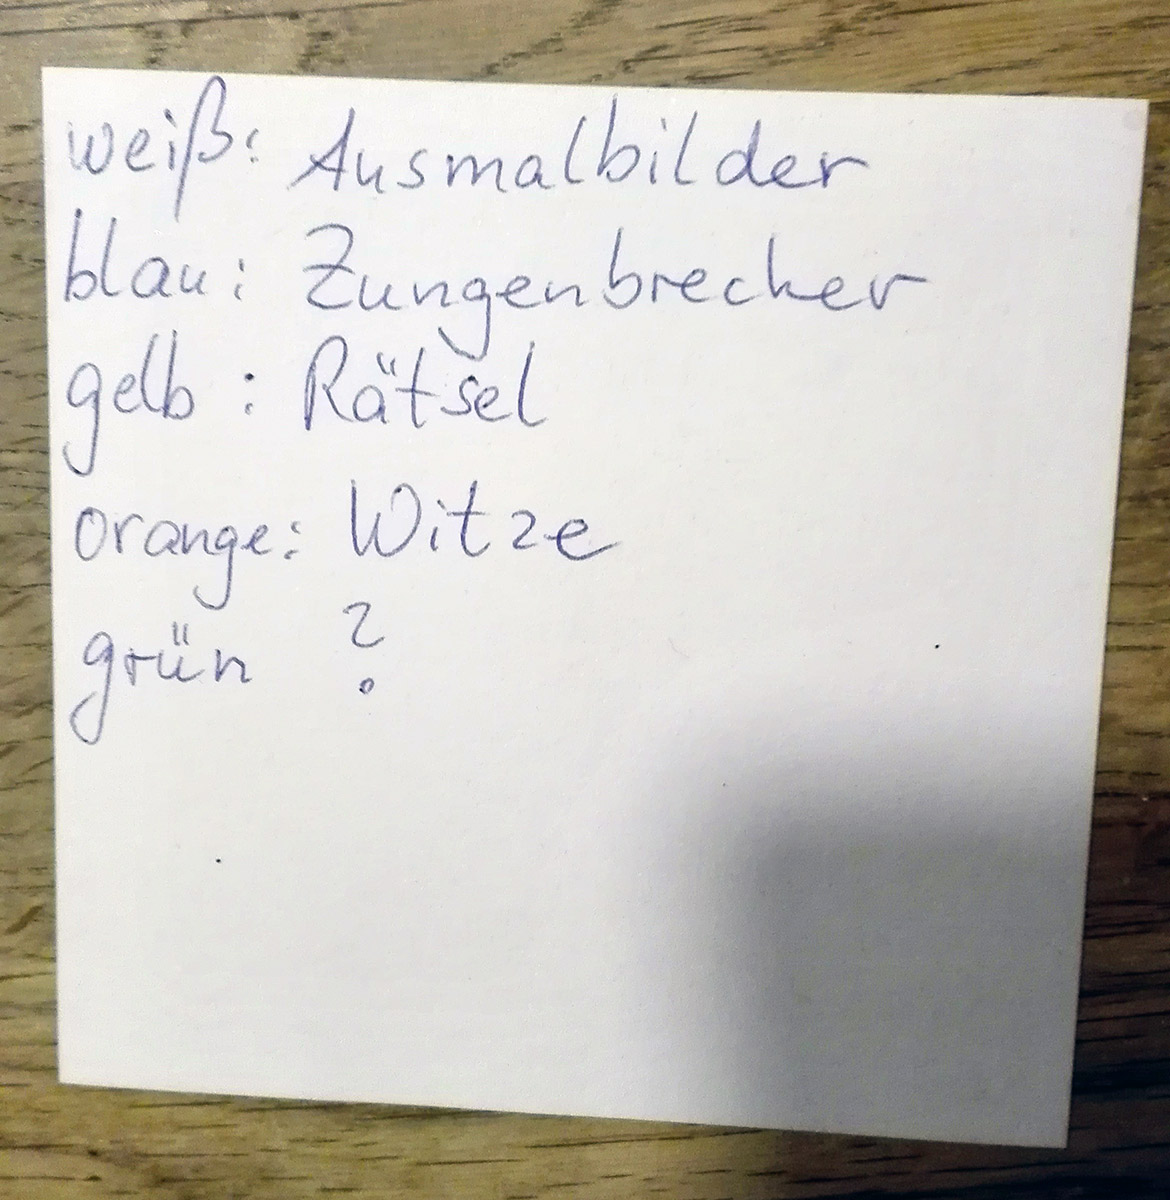 weiß: Ausmalbilder
blau: Zungenbrecher
gelb : Rätsel
orange: Witze
grün ?